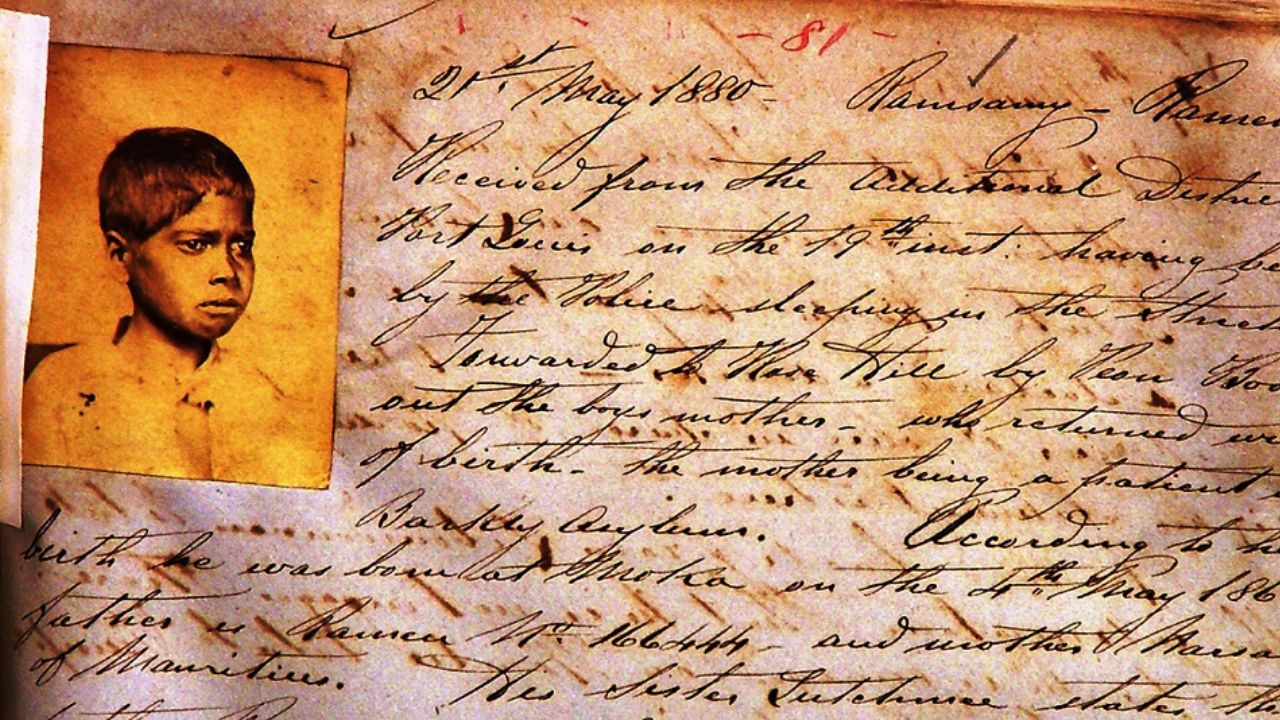 - 81 -
21st. May 1880 - Ramsamy - Ramen
Received from the Additional Distric
Port Louis on the 19th inst: having be
by the Police sleeping in the stree
Forwarded to by Peon
out the boys mother - who returned wi
of birth - the mother being a patient
Barkly Asylum. According to h
birth he was born at Moka on the 4th May 186
father is Ramen No 166444 - and mother
of Mauritius. His sister Lutchmee states th